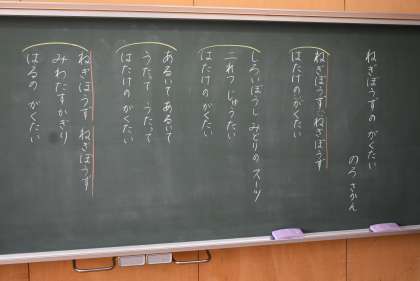 ねぎぼうずの がくたい
のろ さかん
ねぎぼうず ねぎぼうず
はたけの がくたい
しろいぼうし みどりの スーツ
二れつ じゅうたい
はたけの がくたい
あるいて あるいて
うたって うたって
はたけの がくたい
ねぎぼうず ねぎぼうず
みわたすかぎり
はるの がくたい